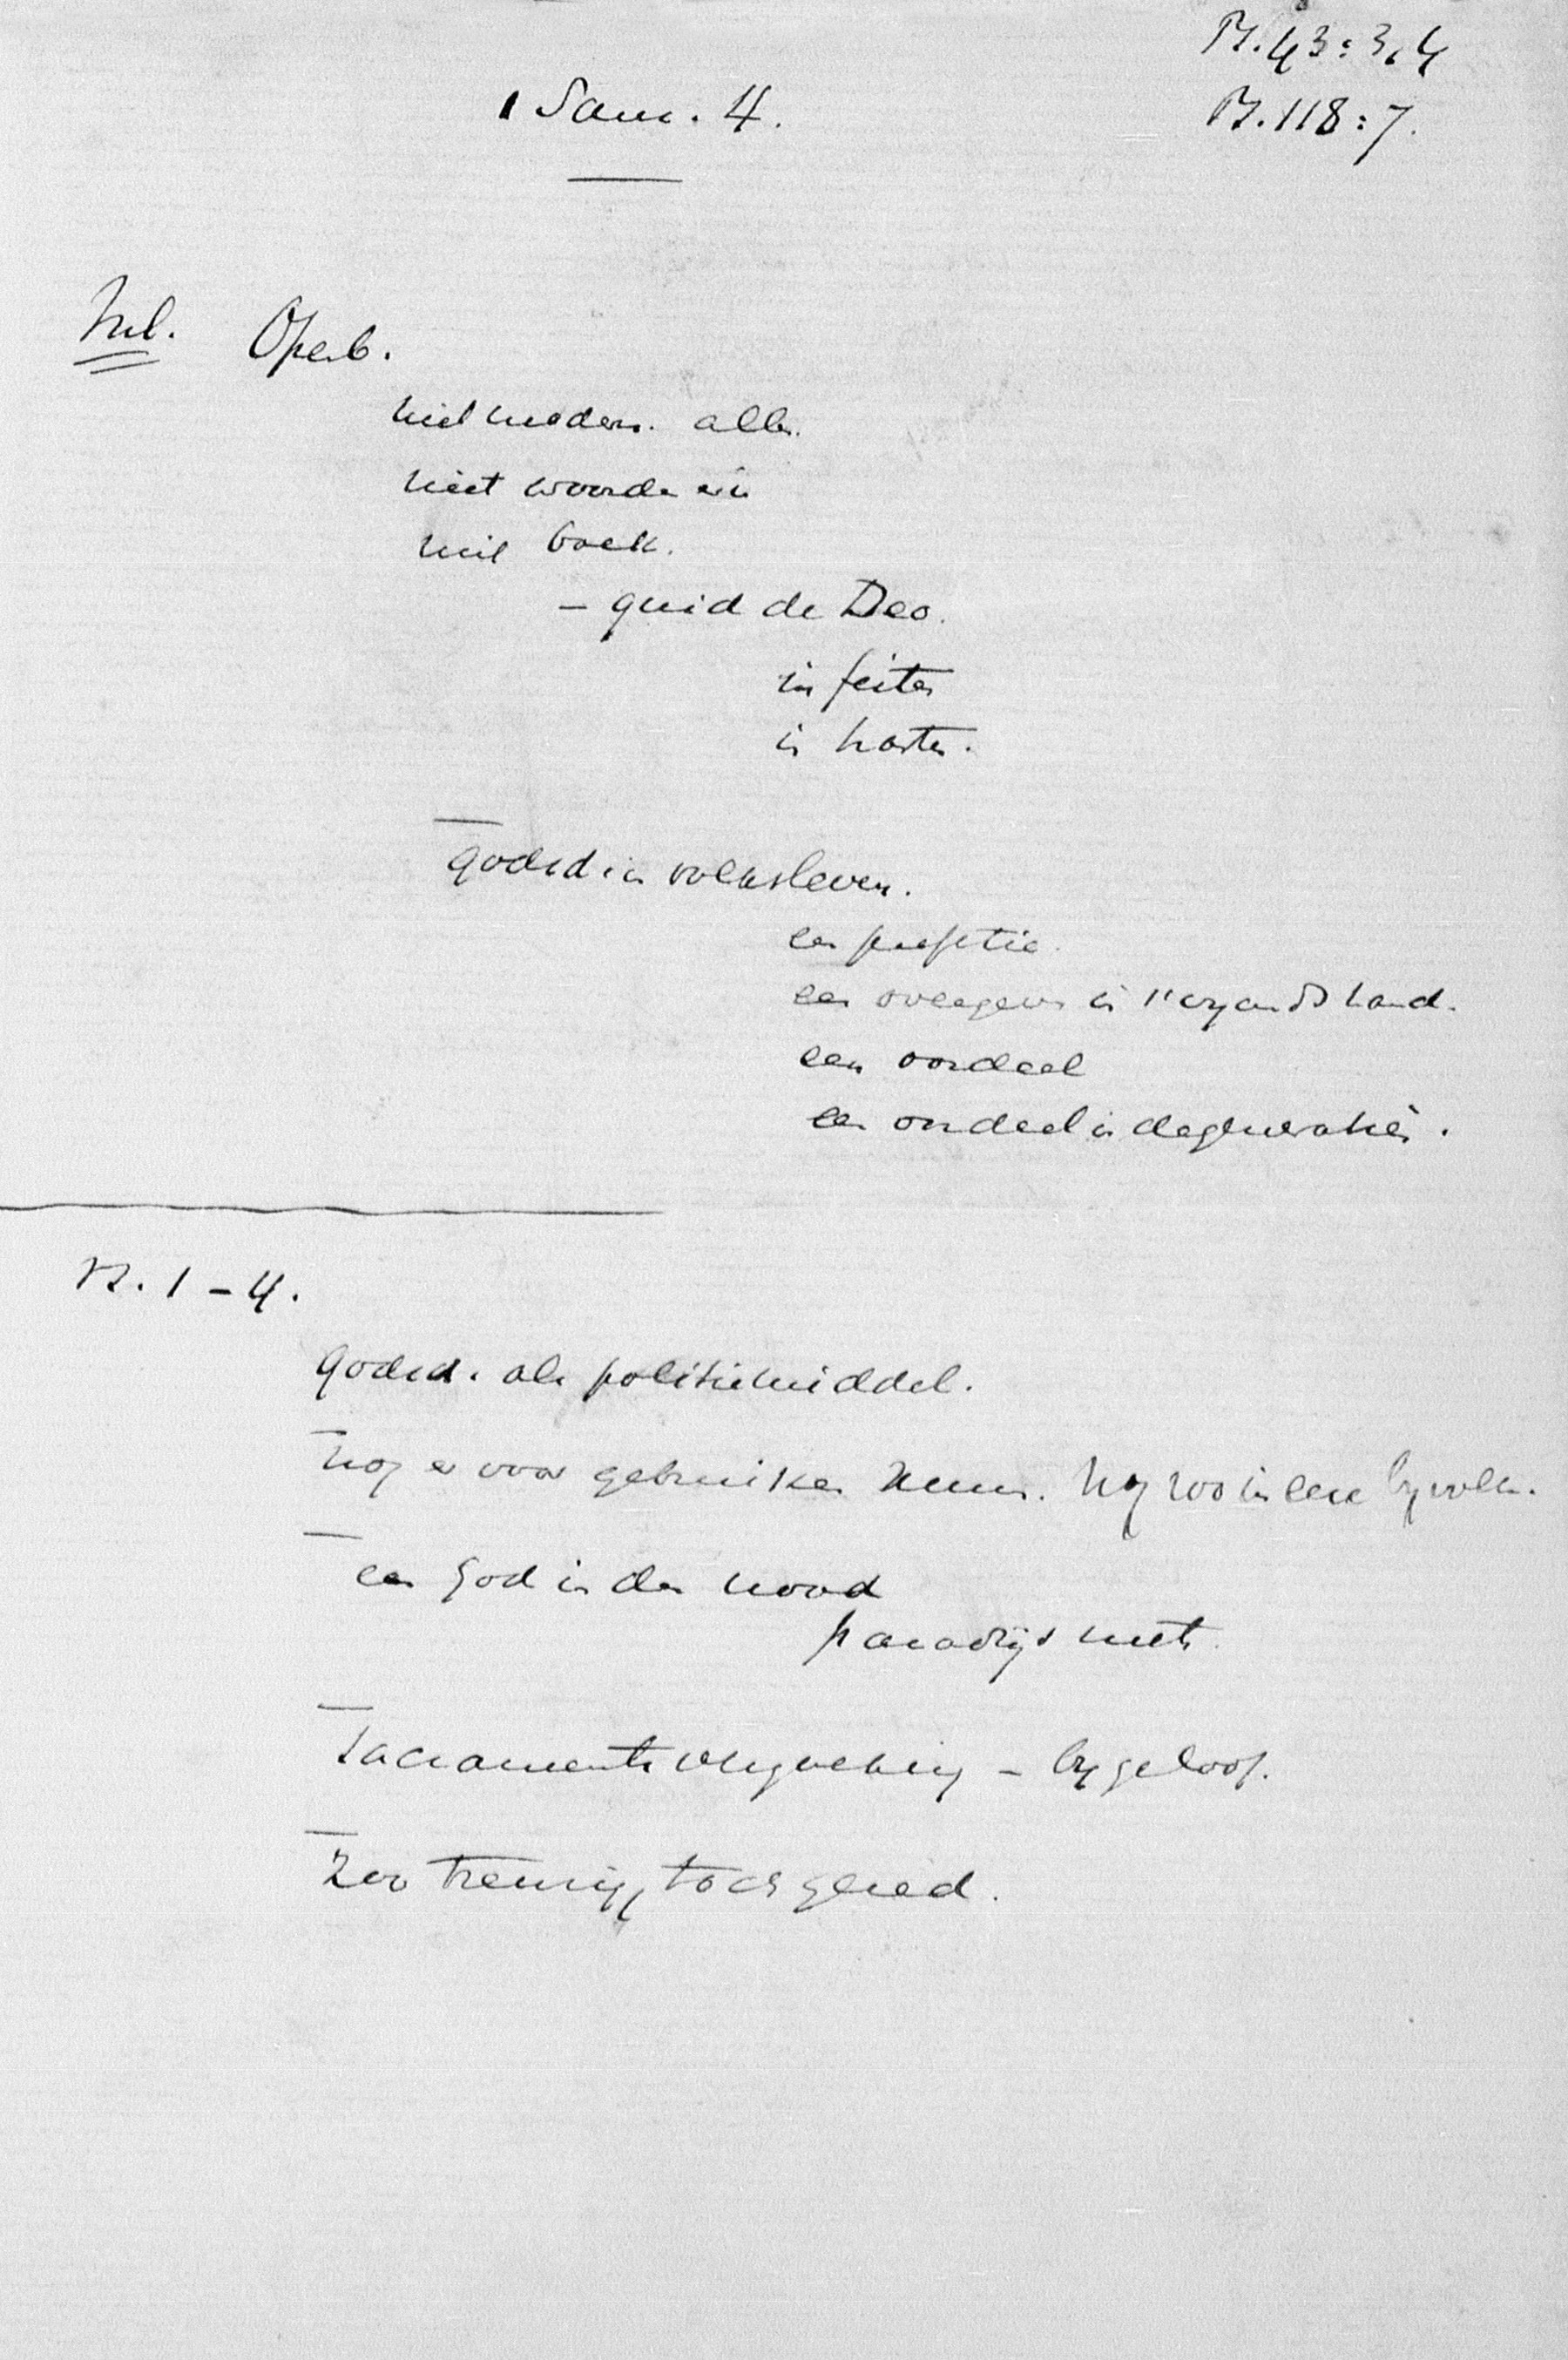 Ps. 43:3,4
1 Sam. 4.
Ps. 118:7.
Inl. Openb.
niet modern. alles.
niet woorden en
niet boek.
— quid de Deo.
in feiten
in harten.
godsd. in volksleven.
een profetie.
een overgeven in 's vyands hand.
een oordeel
een oordeel in degeneratie.
Vs. 1-4.
godsd. als politiemiddel.
nog er voor gebruiken
een God in den nood
paradijs niet.
Sacraments - bygeloof.
Zoo treurig, toch goed.